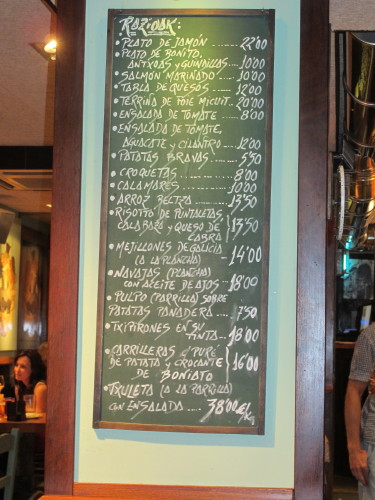 RAZIOAK:
• PLATO DE JAMÓN ........ 22'00
• PLATO DE BONITO,
ANTXOAS y GUINDILLAS ... 10'00
• SALMÓN MARINADO .... 10'00
• TABLA DE QUESOS .... 12'00
• TERRINA DE FOIE MICUIT .. 20'00
• ENSALADA DE TOMATE .... 8'00
• ENSALADA DE TOMATE,
AGUACATE y CILANTRO ... 12'00
• PATATAS BRAVAS .... 5'50
• CROQUETAS ........ 8'00
• CALAMARES ........ 10'00
• ARROZ BELTZA ..... 13'50
• RISOTTO DE PUNTALETAS,
CALABAZA y QUESO DE 13'50
CABRA
• MEJILLONES DE GALICIA
(A LA PLANCHA) .. 14'00
• NAVAJAS (PLANCHA)
CON ACEITE DE AJOS .. 18'00
• PULPO (PARRILLA) SOBRE
PATATAS PANADERA .... 7'50
• TXIPIRONES EN SU
TINTA .. 18'00
• CARRILLERAS c/ PURÉ
DE PATATA y CROCANTE 16'00
DE BONIATO
• TXULETA (A LA PARRILLA)
CON ENSALADA .... 38'00 €/Kg